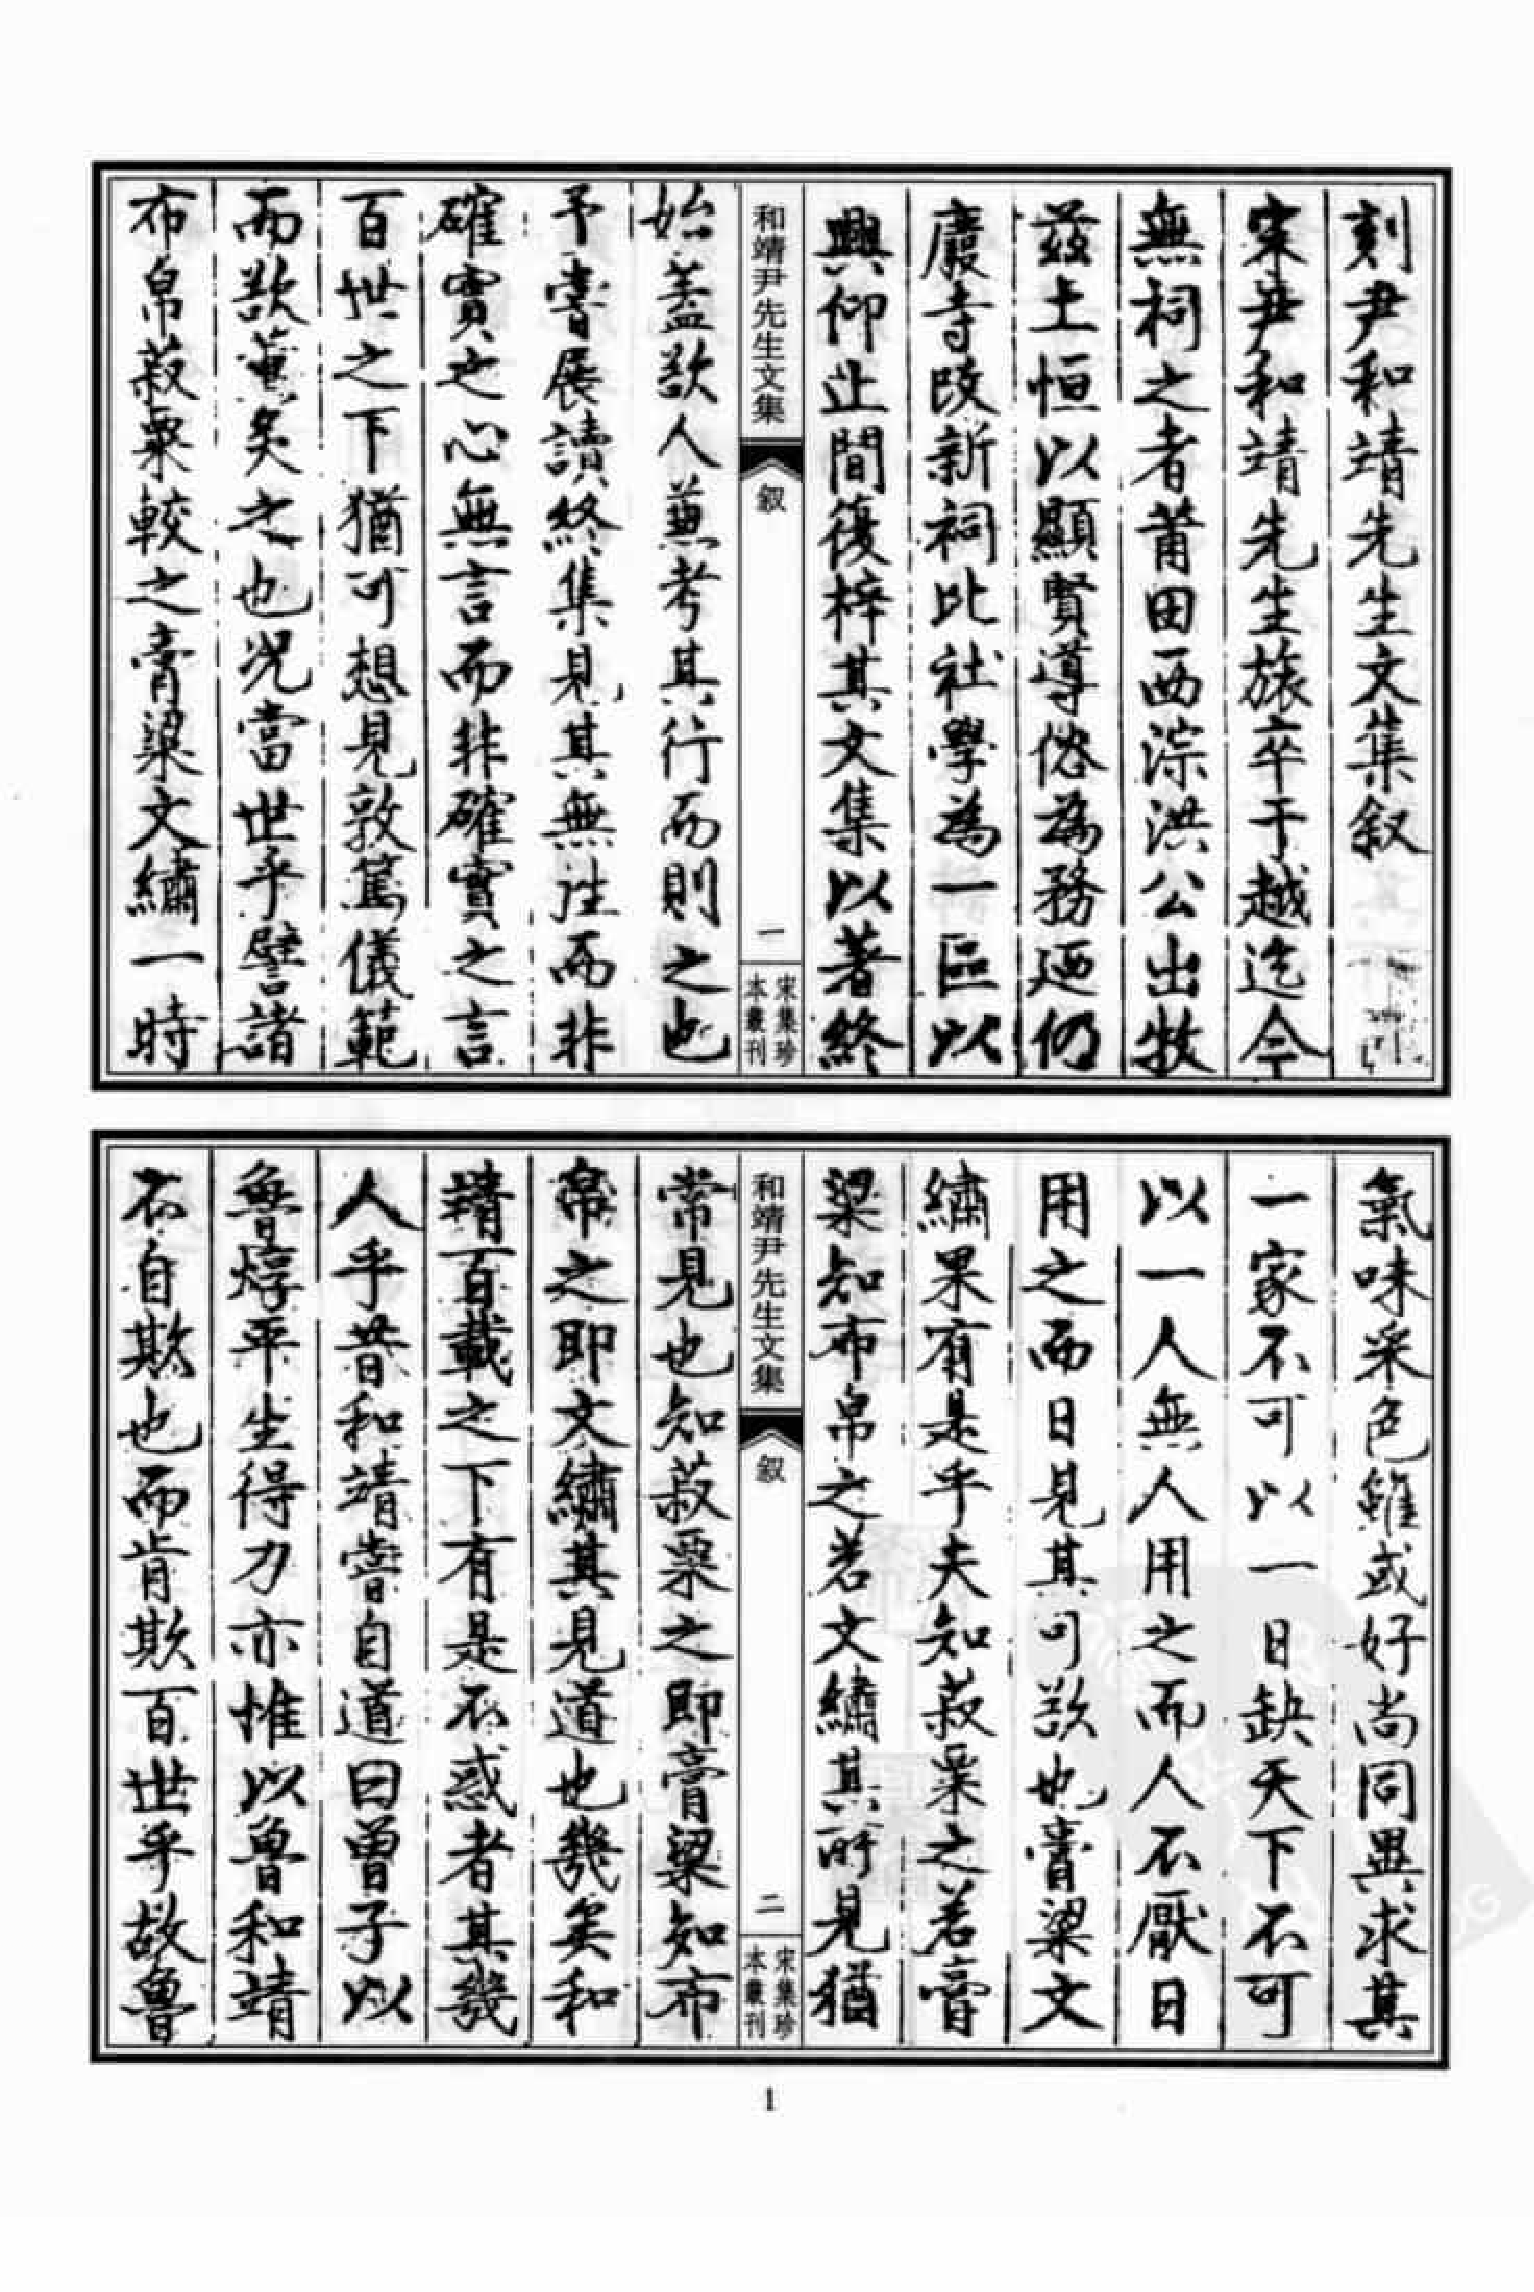 刻尹和靖先生文集叙
宋尹和靖先生旅卒于越迄今
無祠之者莆田西淙洪公出牧
茲土恒以顯賢導俗為務廼仍
廢寺改新祠比社學為一區以
興仰止間復梓其文集以著終
和靖尹先生文集
叙
一
宋集珍
本叢刊
始葢欲人兼考其行而則之也
予嘗展讀終集見其無往而非
確實之心無言而非確實之言
百世之下猶可想見敦篤儀範
而欲薰炙之也況當世乎譬諸
布帛菽粟較之膏粱文繡一時
氣味采色雖或好尚同異求其
一家不可以一日缺天下不可
以一人無人用之而人不厭日
用之而日見其可欲也膏粱文
繡果有是乎夫知菽粟之若膏
粱知布帛之若文繡其所見猶
和靖尹先生文集
叙
二
宋集珍
本叢刊
常見也知菽粟之即膏粱知布
帛之即文繡其見道也幾矣和
靖百載之下有是不惑者其幾
人乎昔和靖嘗自道曰曾子以
魯焞平生得力亦惟以魯和靖
不自欺也而肯欺百世乎故魯
1